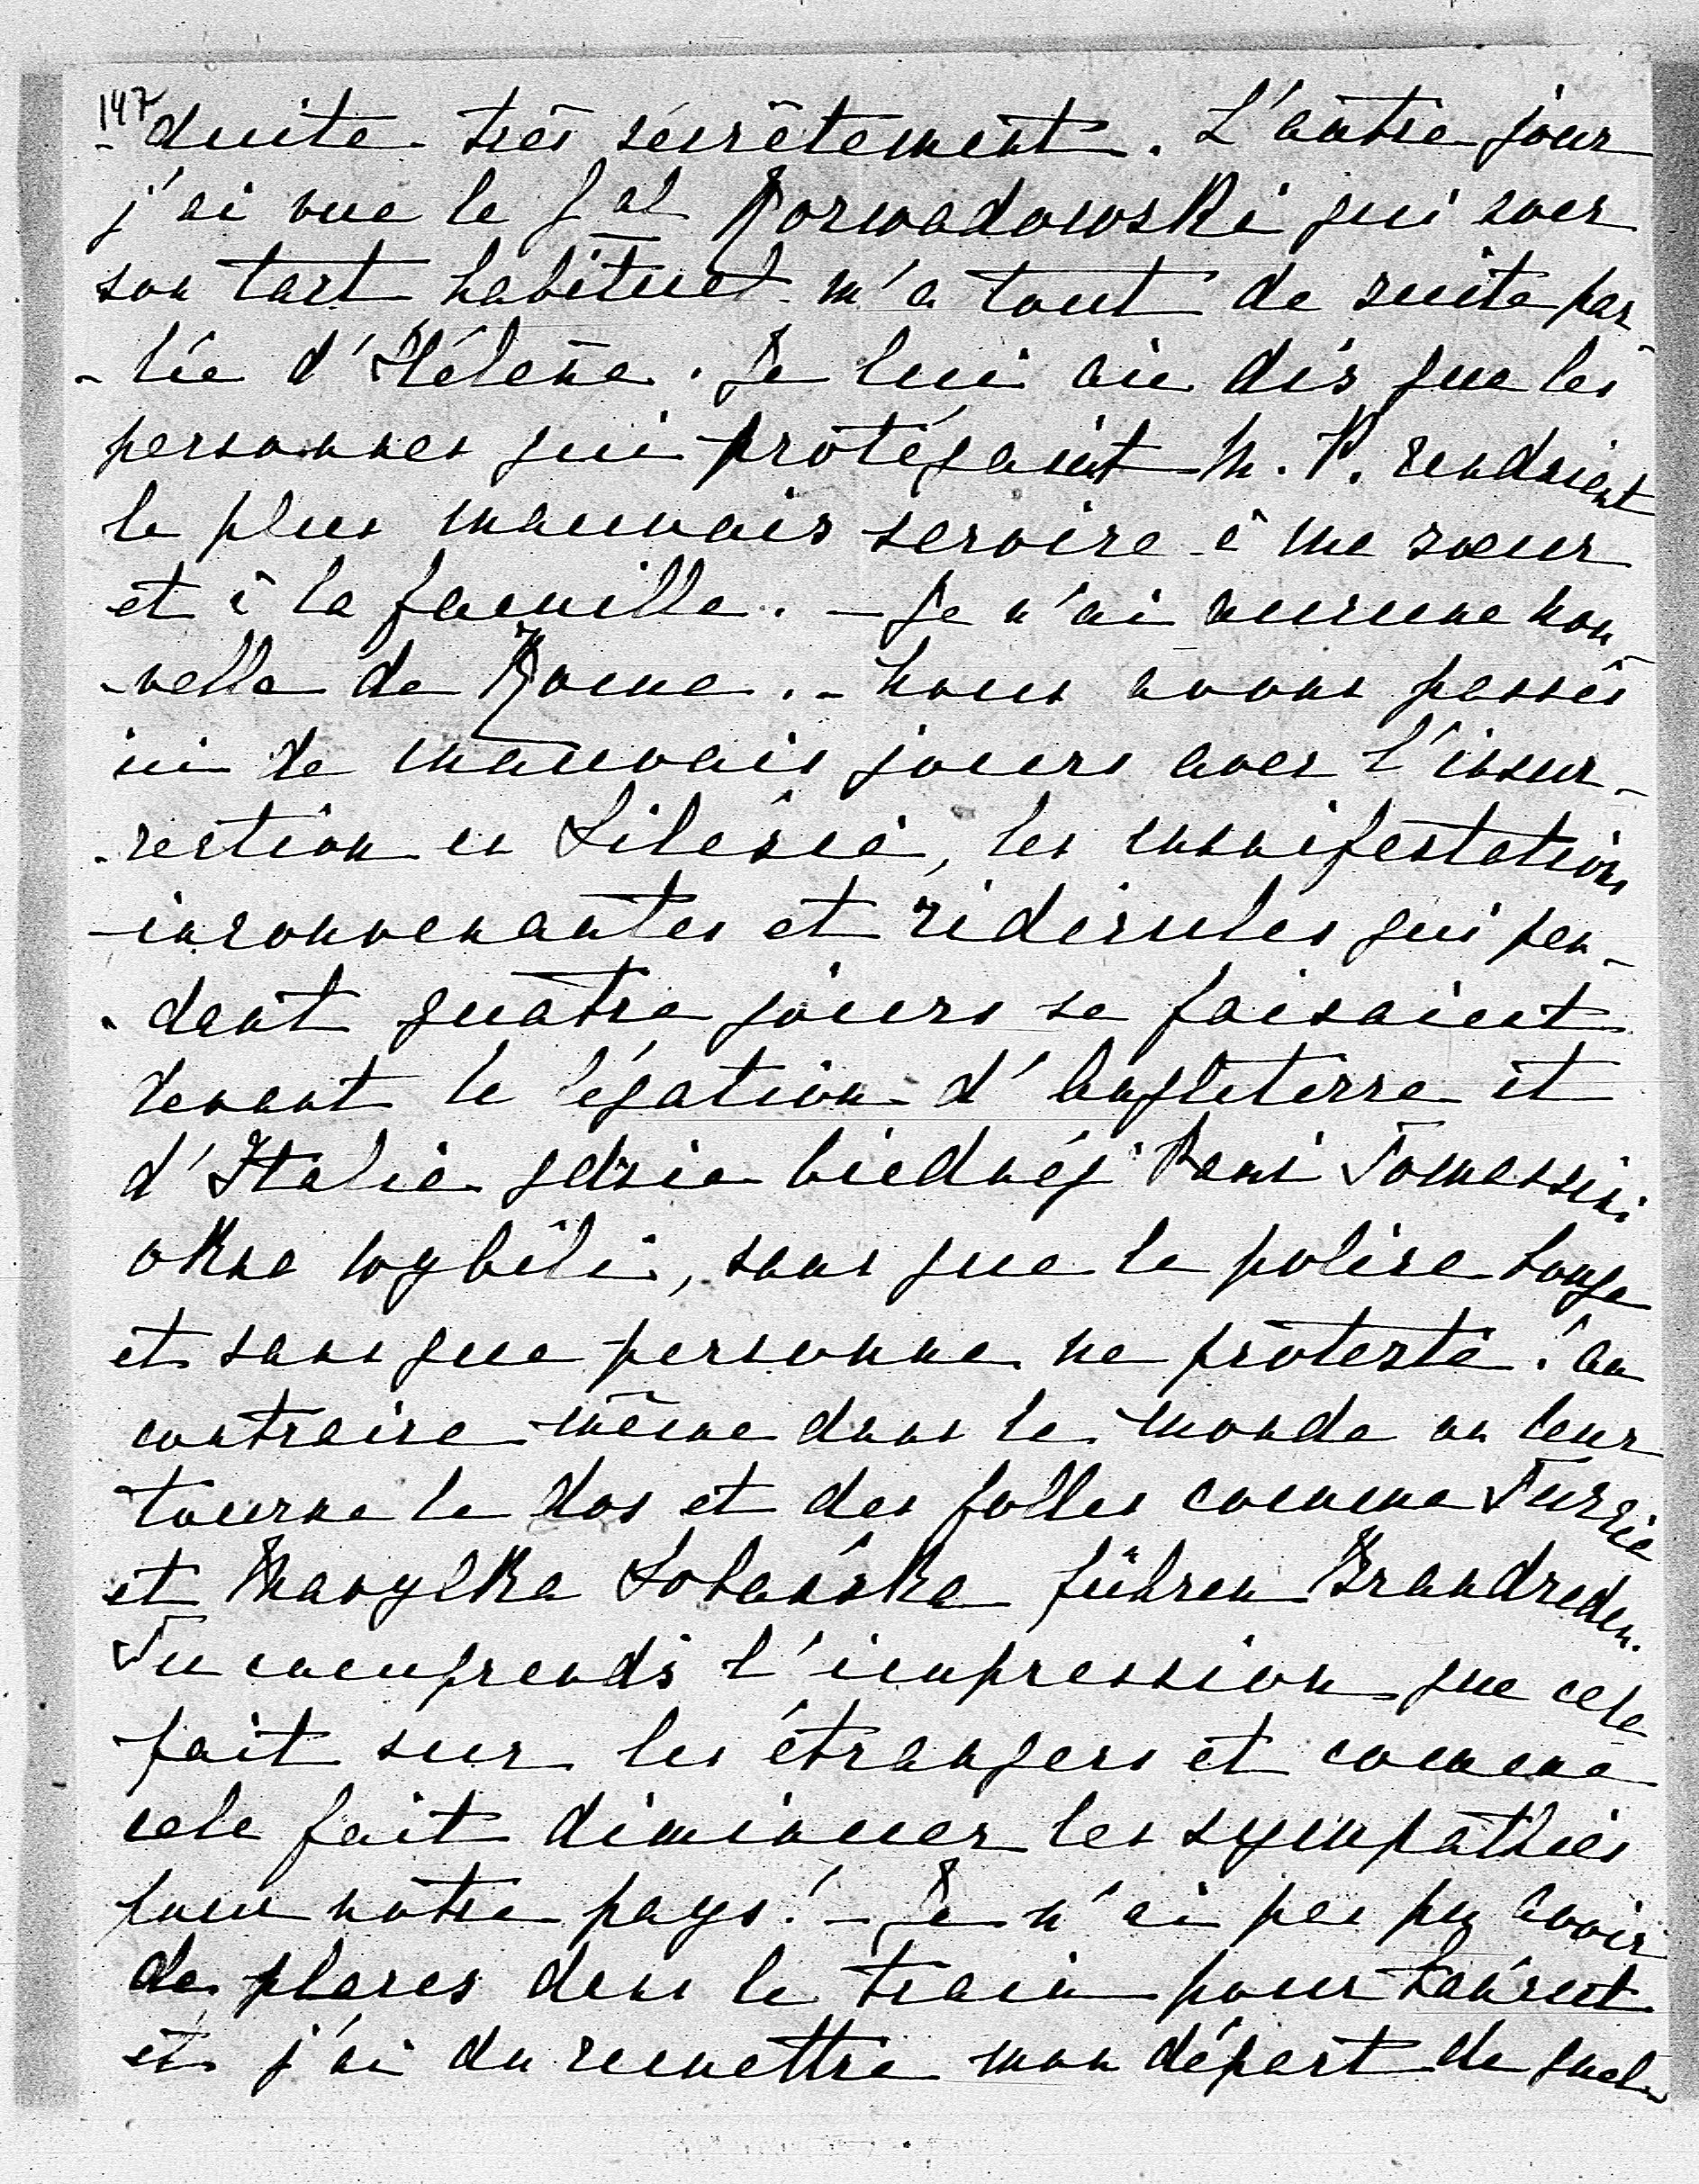 147
-duite très secrètement. L'autre jour
j'ai vue le Gal Rozwadowski qui avec
son tact habituel m'a tout de suite par-
-lée d'Hélène. Je lui ai dis que les
personnes qui protégaient M. P. rendraient
le plus mauvais service à ma sœur
et à la famille. — Je n'ai aucune nou-
-velle de Rome. - Nous avons passés
ici de mauvais jours avec l'insur-
-rection en Silésie, les manifestations
inconvenantes et ridicules qui pen-
-dant quatre jours se faisaient
devant la légation d'Angleterre et
d'Italie gdzie biednéj Pani Tomassini
okna wybili, sans que la police bouge
et sans que personne ne proteste! au
contraire même dans le monde on leur
tourne le dos et des folles comme
et Marylka Sobańska führen Brandreden.
Tu comprends l'impression que cela
fait sur les étrangers et comme
cela fait diminuer les sympathies
pour notre pays! - Je n'ai pas pu avoir
de places dans le train pour
et j'ai du remettre mon départ de quel-